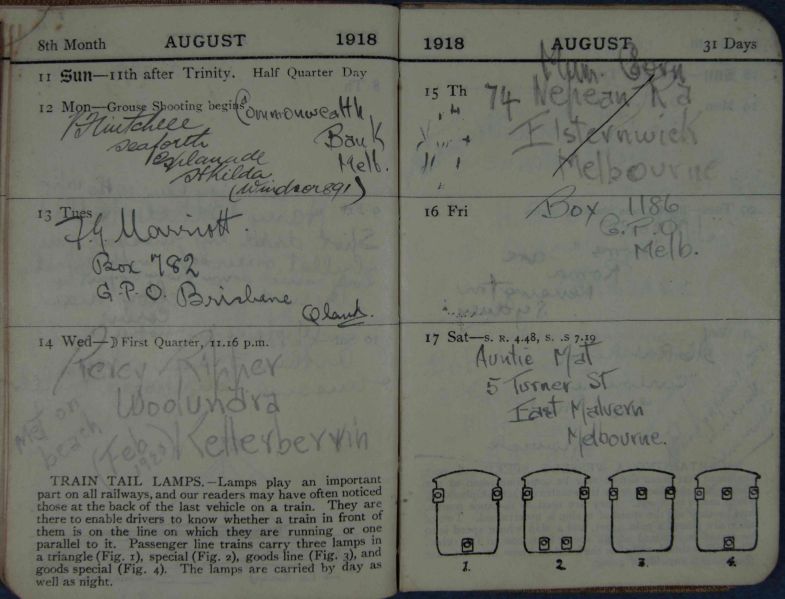 8th Month AUGUST 1918
11 Sun—11th after Trinity. Half Quarter Day
12 Mon—Grouse Shooting begins
Commonwealth
Bank
Melb.
Seaforth
Esplanade
St Kilda
(Windsor 891)
13 Tues
F.G. Marriott.
Box 782
G.P.O. Brisbane
Qland.
14 Wed—☽ First Quarter, 11.16 p.m.
Percy Ripper
Woolundra
Kellerberrin
Met on
beach
(Feb
1920)
TRAIN TAIL LAMPS.—Lamps play an important
part on all railways, and our readers may have often noticed
those at the back of the last vehicle on a train. They are
there to enable drivers to know whether a train in front of
them is on the line on which they are running or one
parallel to it. Passenger line trains carry three lamps in
a triangle (Fig. 1), special (Fig. 2), goods line (Fig. 3), and
goods special (Fig. 4). The lamps are carried by day as
well as night.
1918 AUGUST 31 Days
15 Th
74 Nepean Rd
Elsternwick
Melbourne
16 Fri
Box 1186
G.P.O.
Melb.
17 Sat—S. R. 4.48, S. .S 7.19
Auntie Mat
5 Turner St
East Malvern
Melbourne.
1. 2. 3. 4.